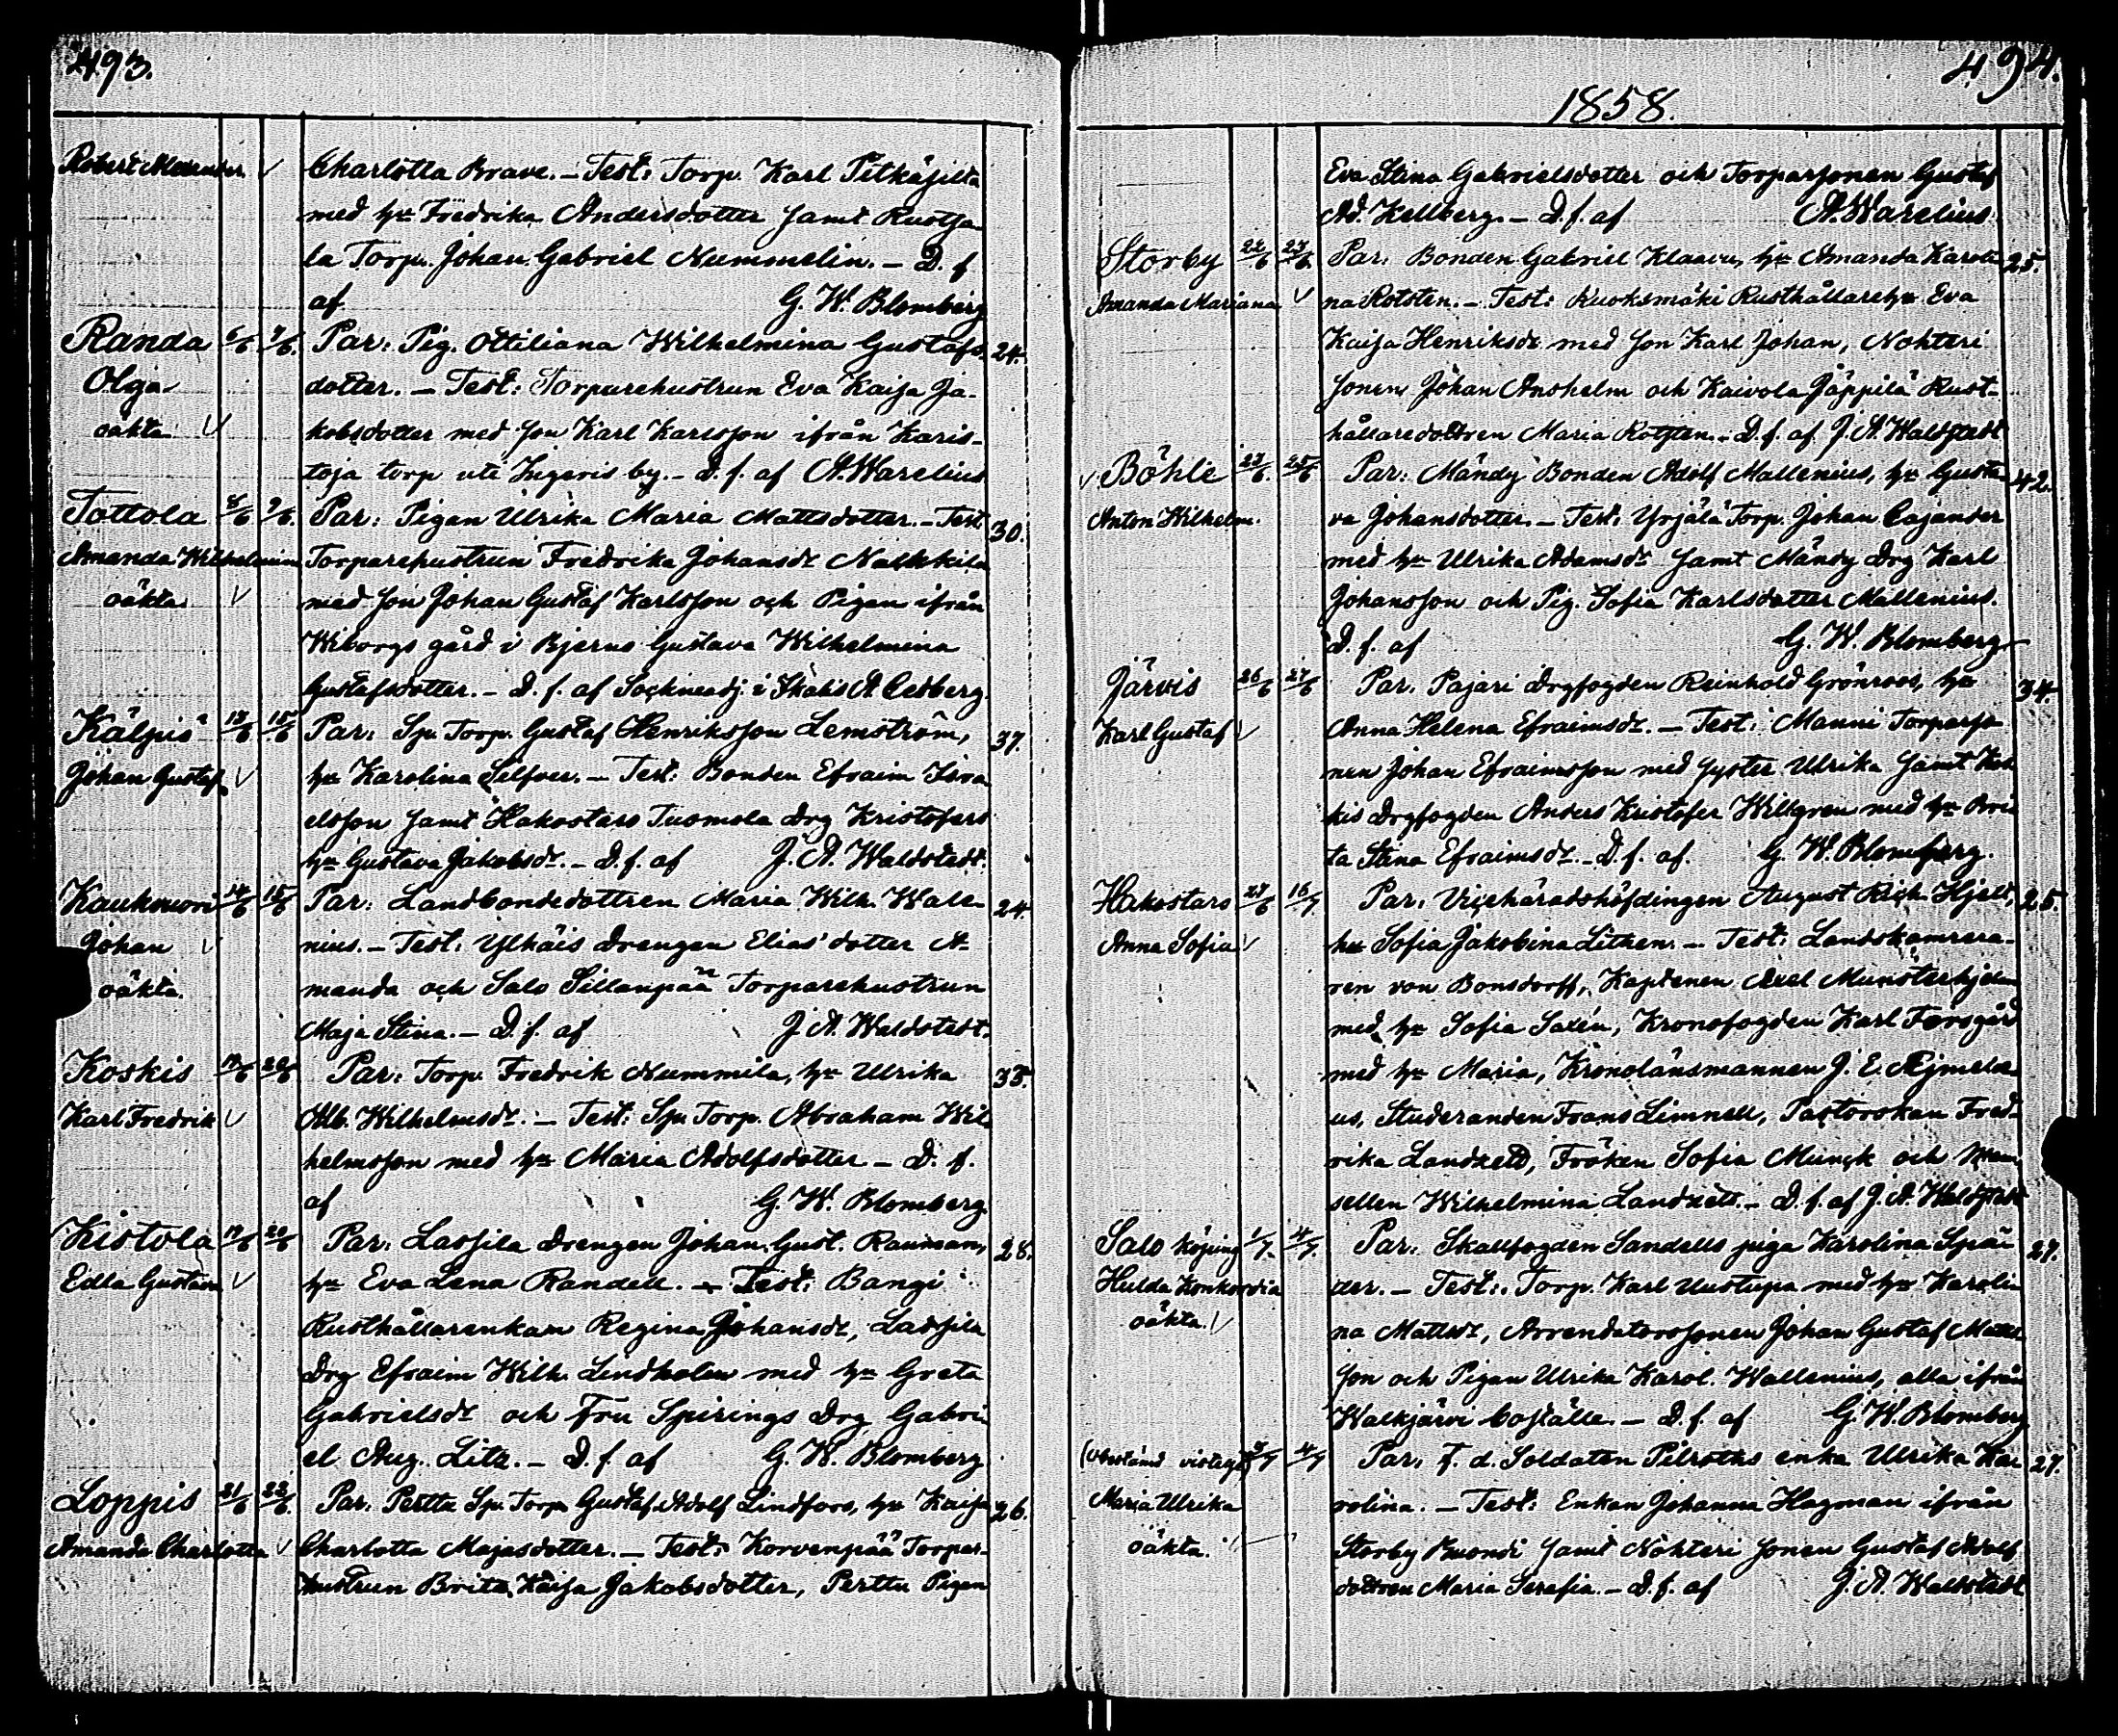 493.
Robert Alexander. Charlotta Brave. – Test: Torp. Karl Pitkäjilta
med hu Fredrika Andersdotter samt Rustja-
la Torp. Johan Gabriel Nummelin. – D. f.
af G. W. Blomberg
Randa 6/6 7/6. Par: Pig. Ottiliana Wilhelmina Gustafs- 24.
Olga dotter. – Test: Torparehustrun Eva Kaisa Ja-
oäkta kobsdotter med son Karl Karlsson ifrån Karis-
toja torp uti Ingeris by. – D. f. af A. Warelius
Tottola 8/6 9/6. Par: Pigan Ulrika Maria Mattsdotter. – Test: 30.
Amanda Wilhelmina Torparehustrun Fredrika Johansdr Nalkkila
oäkta med son Johan Gustaf Karlsson och Pigan ifrån
Wiborgs gård i Bjerno Gustava Wilhelmina
Gustafsdotter. – D. f. af Sockneadj. i A. Cedberg.
Kälpiö 13/6 15/6 Par: Sp. Torp. Gustaf Henriksson Lemström, 37.
Johan Gustaf hu Karolina Selfver. – Test: Bonden Efraim Isra-
elsson samt Hakostaro Tuomola Drg Kristofers
hu Gustava Jakobsdr. – D. f. af J. A. Waldstedt.
Kaukvuori 14/6 15/6 Par: Landbondedottren Maria Wilh. Walle- 24
Johan nius. – Test: Ylhäis Drengen Elias' dotter A-
oäkta. manda och Salo Sillanpää Torparehustrun
Maja Stina. – D. f. af J. A. Waldstedt.
Koskis 17/6 20/6 Par: Torp. Fredrik Nummila, hu Ulrika 33.
Karl Fredrik Alb. Wilhelmsdr. – Test: Sp. Torp. Abraham Wil-
helmsson med hu Maria Adolfsdotter – D. f.
af G. W. Blomberg.
Kistola 17/6 20/6 Par: Lassila Drengen Johan Gust. Raumam, 28.
Edla Gustava hu Eva Lena Randell. – Test: Bangi
Rusthållarenkan Regina Johansdr, Lassila
Drg Efraim Wilh. Lindholm med hu Greta
Gabrielsdr och Fru Spirings Drg Gabri-
el Aug. Litz. – D. f. af G. W. Blomberg
Loppis 21/6 22/6. Par: Perttu Sp. Torp. Gustaf Adolf Lindfors, hu Kaisa 26.
Amanda Charlotta Charlotta Majasdotter. – Test: Korvenpää Torpar-
hustrun Brita Kaisa Jakobsdotter, Perttu Pigan
494.
1858.
Eva Stina Gabrielsdotter och Torparsonen Gustaf
Ad. Kellberg. – D. f. af A. Warelius.
Storby 22/6 27/6. Par: Bonden Gabriel Klaavu, hu Amanda Karoli- 25.
Amanda Mariana na Rotsten. – Test: Kuoksmäki Rusthållarehu Eva
Kaisa Henriksdr med son Karl Johan, Nohteri
sonen Johan Anshelm och Kaivola Jäppilä Rust-
hållaredottren Maria Rotsten. – D. f. af J. A. Waldstedt
Böhle 23/6. 25/6 Par: Mändy Bonden Adolf Mallenius, hu Gusta- 42.
Anton Wilhelm. va Johansdotter. – Test: Yrjälä Torp. Johan Cajander
med hu Ulrika Adamsdr samt Mändy Drg Karl
Johansson och Pig. Sofia Karlsdotter Mallenius.
D. f. af G. W. Blomberg
Järvis 26/6 27/6 Par. Pajari Drgfogden Reinhold Grönroos, hu 34.
Karl Gustaf Anna Helena Efraimsdr. – Test: Manni Torparso-
nen Johan Efraimsson med syster Ulrika samt Kos-
kis Drgfogden Anders Kristofer Willgren med hu Bri-
ta Stina Efraimsdr. – D. f. af. G. W. Blomberg.
Hakostaro 27/6 16/7 Par. Vicehäradshöfdingen August Rich. Hjelt, 25.
Anna Sofia hu Sofia Jakobina Lithen. – Test: Landskamrera-
ren von Bonsdorff, Kaptenen Axel Munsterhjelm
med hu Sofia Saxén, Kronofogden Karl Forsgård
med hu Maria, Kronolänsmannen J. E. Æjmelæ-
us, Studeranden Frans Limnell, Pastorskan Fred-
rika Landzett, Fröken Sofia Munck och Mam-
sellen Wilhelmina Landzett. – D. f. af J. A. Waldstedt
Salo köping 1/7. 4/7 Par: Skallfogden Sandells piga Karolina Spän- 27.
Hulda Konkordia der. – Test: Torp. Karl Uustupa med hu Karoli-
oäkta. na Mattsdr, Arrendatorssonen Johan Gustaf Matts-
son och Pigan Ulrika Karol. Wallenius, alla ifrån
Walkjärvi boställe. – D. f. af G. W. Blomberg
(Obestämd vistelse) 3/7 4/7 Par. F. d. Soldaten Pilroths enka Ulrika Ka- 27.
Maria Ulrika rolina. – Test: Enkan Johanna Hagman ifrån
oäkta. Storby samt Nohteri sonen Gustaf Adolf
dottren Maria Serafia. – D. f. af J. A. Waldstedt